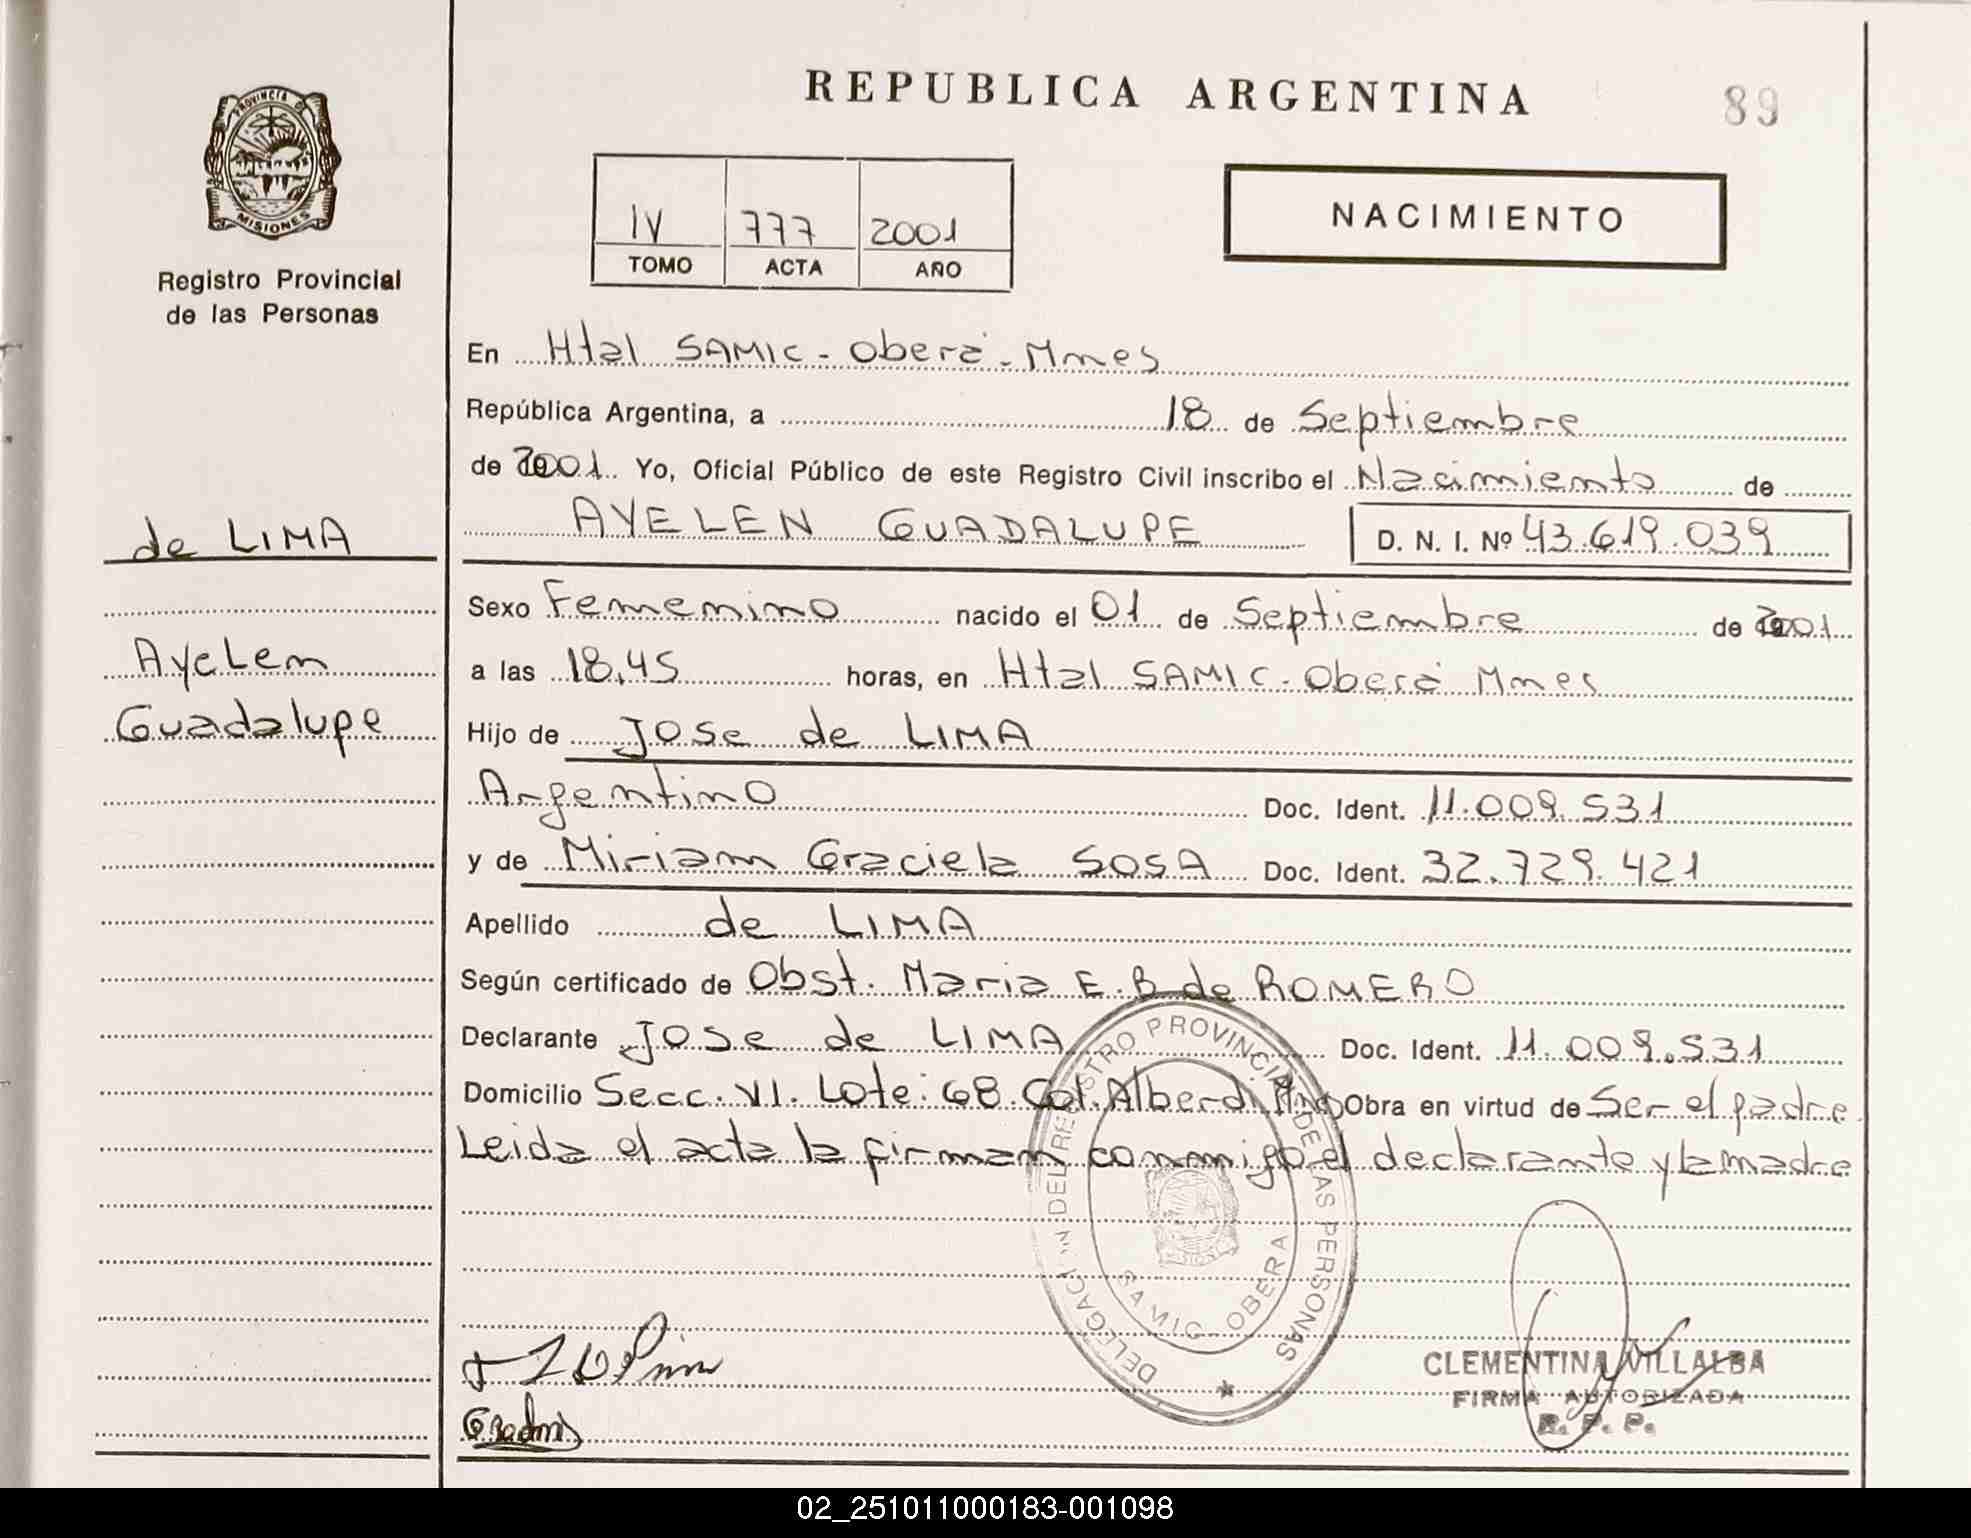 REPUBLICA ARGENTINA
89
PROVINCIA DE
MISIONES
Registro Provincial
de las Personas
IV 777 2001
TOMO ACTA AÑO
NACIMIENTO
En Htal SAMIC - Oberá - Mnes
República Argentina, a 18 de Septiembre
de 2001 Yo, Oficial Público de este Registro Civil inscribo el Nacimiento de
AYELEN GUADALUPE D. N. I. Nº 43.619.039
de LIMA
Ayelen
Guadalupe
Sexo Femenino nacido el 01 de Septiembre de 2001
a las 18,45 horas, en Htal SAMIC - Oberá Mnes
Hijo de Jose de LIMA
Argentino Doc. Ident. 11.009.531
y de Miriam Graciela SOSA Doc. Ident. 32.729.421
Apellido de LIMA
Según certificado de Obst. Maria E. B de ROMERO
Declarante Jose de LIMA Doc. Ident. 11.009.531
Domicilio Secc. VI. Lote: 68. Col. Alberdi Mnes Obra en virtud de Ser el padre
Leida el acta la firman conmigo el declarante y la madre
DELEGACION DEL REGISTRO PROVINCIAL DE LAS PERSONAS
SAMIC - OBERA
CLEMENTINA VILLALBA
FIRMA AUTORIZADA
R. P. P.
02_251011000183-001098